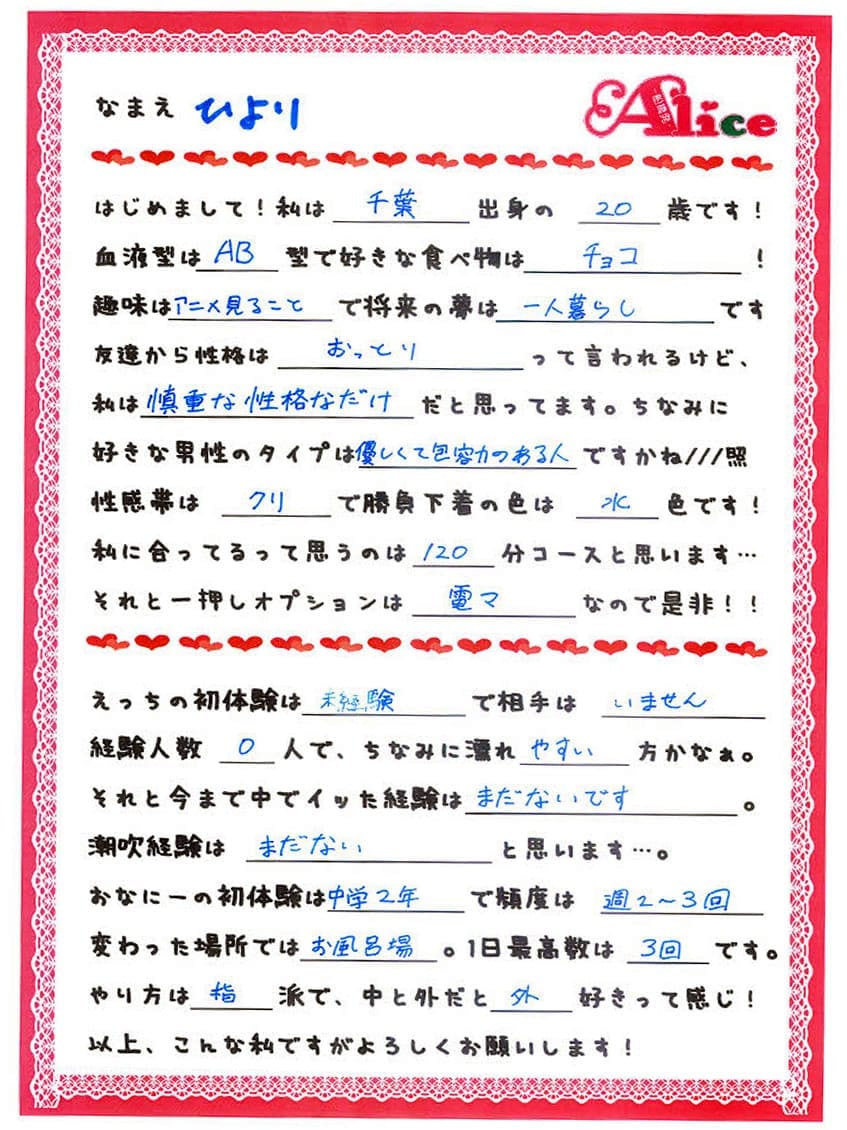 なまえ ひより
Alice
はじめまして！私は 千葉 出身の 20 歳です！
血液型は AB 型で好きな食べ物は チョコ ！
趣味は アニメ見ること で将来の夢は 一人暮らし です
友達から性格は おっとり って言われるけど、
私は 慎重な性格なだけ だと思ってます。ちなみに
好きな男性のタイプは 優しくて包容力のある人 ですかね///照
性感帯は クリ で勝負下着の色は 水 色です！
私に合ってるって思うのは 120 分コースと思います…
それと一押しオプションは 電マ なので是非！！
えっちの初体験は 未経験 で相手は いません
経験人数 0 人で、ちなみに濡れ やすい 方かなぁ。
それと今まで中でイッた経験は まだないです 。
潮吹経験は まだない と思います…。
で頻度は 週2～3回
変わった場所では お風呂場 。1日最高数は 3回 です。
やり方は 指 派で、中と外だと 外 好きって感じ！
以上、こんな私ですがよろしくお願いします！